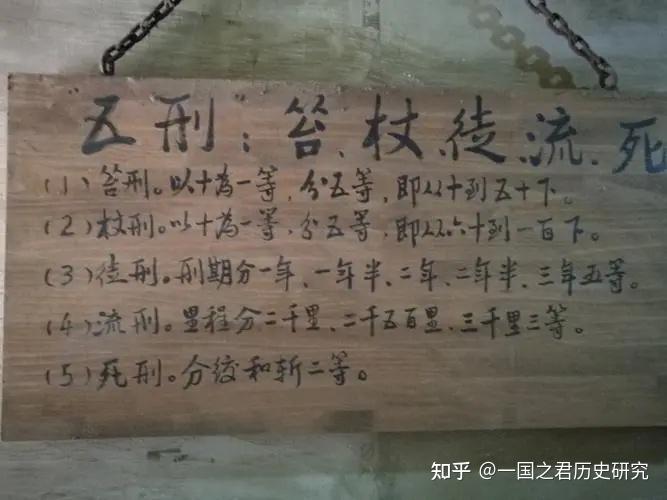 "五刑"：笞、杖、徒、流、死
（1）笞刑。以十为一等，分五等，即从十到五十下。
（2）杖刑。以十为一等，分五等，即从六十到一百下。
（3）徒刑。刑期分一年、一年半、二年、二年半、三年五等。
（4）流刑。里程分二千里、二千五百里、三千里三等。
（5）死刑。分绞和斩二等。
知乎 @一国之君历史研究